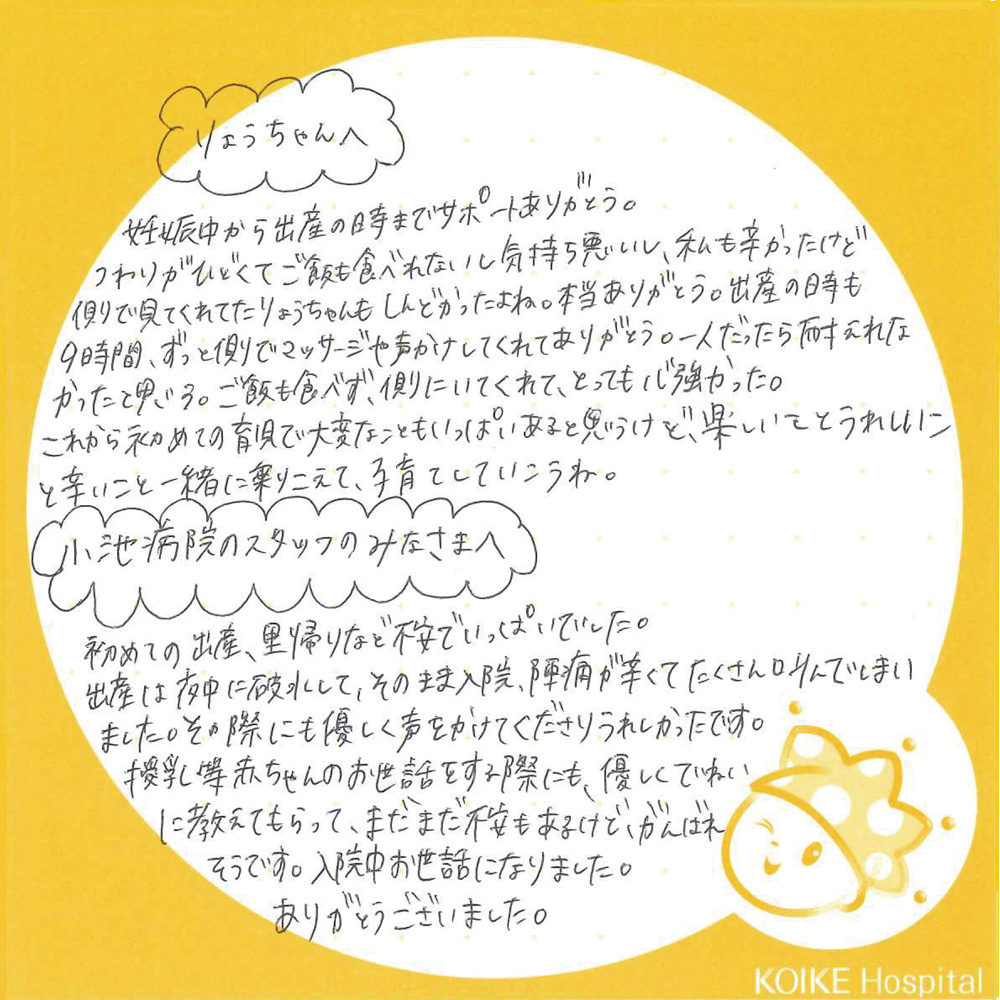 りょうちゃんへ
妊娠中から出産の日時までサポートありがとう。
つわりがひどくてご飯も食べれないし気持ち悪いし、私も辛かったけど
側で見てくれてたりょうちゃんもしんどかったよね。本当ありがとう。出産の日時も
9時間、ずっと側りでマッサージや声かけしてくれてありがとう。一人だったら耐えれな
かったと思う。ご飯も食べず、側にいてくれて、とっても心強かった。
これから初めての育児で大変なこともいっぱいあると思うけど、楽しいことうれしいこ
と辛いこと一緒に乗りこえて、子育てしていこうね。
小池病院のスタッフのみなさまへ
初めての出産、里帰りなど不安でいっぱいでした。
出産は夜中に破水して、そのまま入院、陣痛が辛くてたくさん叫んでしまい
ました。その際にも優しく声をかけてくださりうれしかったです。
授乳等赤ちゃんのお世話をする際にも、優しくていねい
に教えてもらって、まだまだ不安もあるけど、がんばれ
そうです。入院中お世話になりました。
ありがとうございました。
KOIKE Hospital